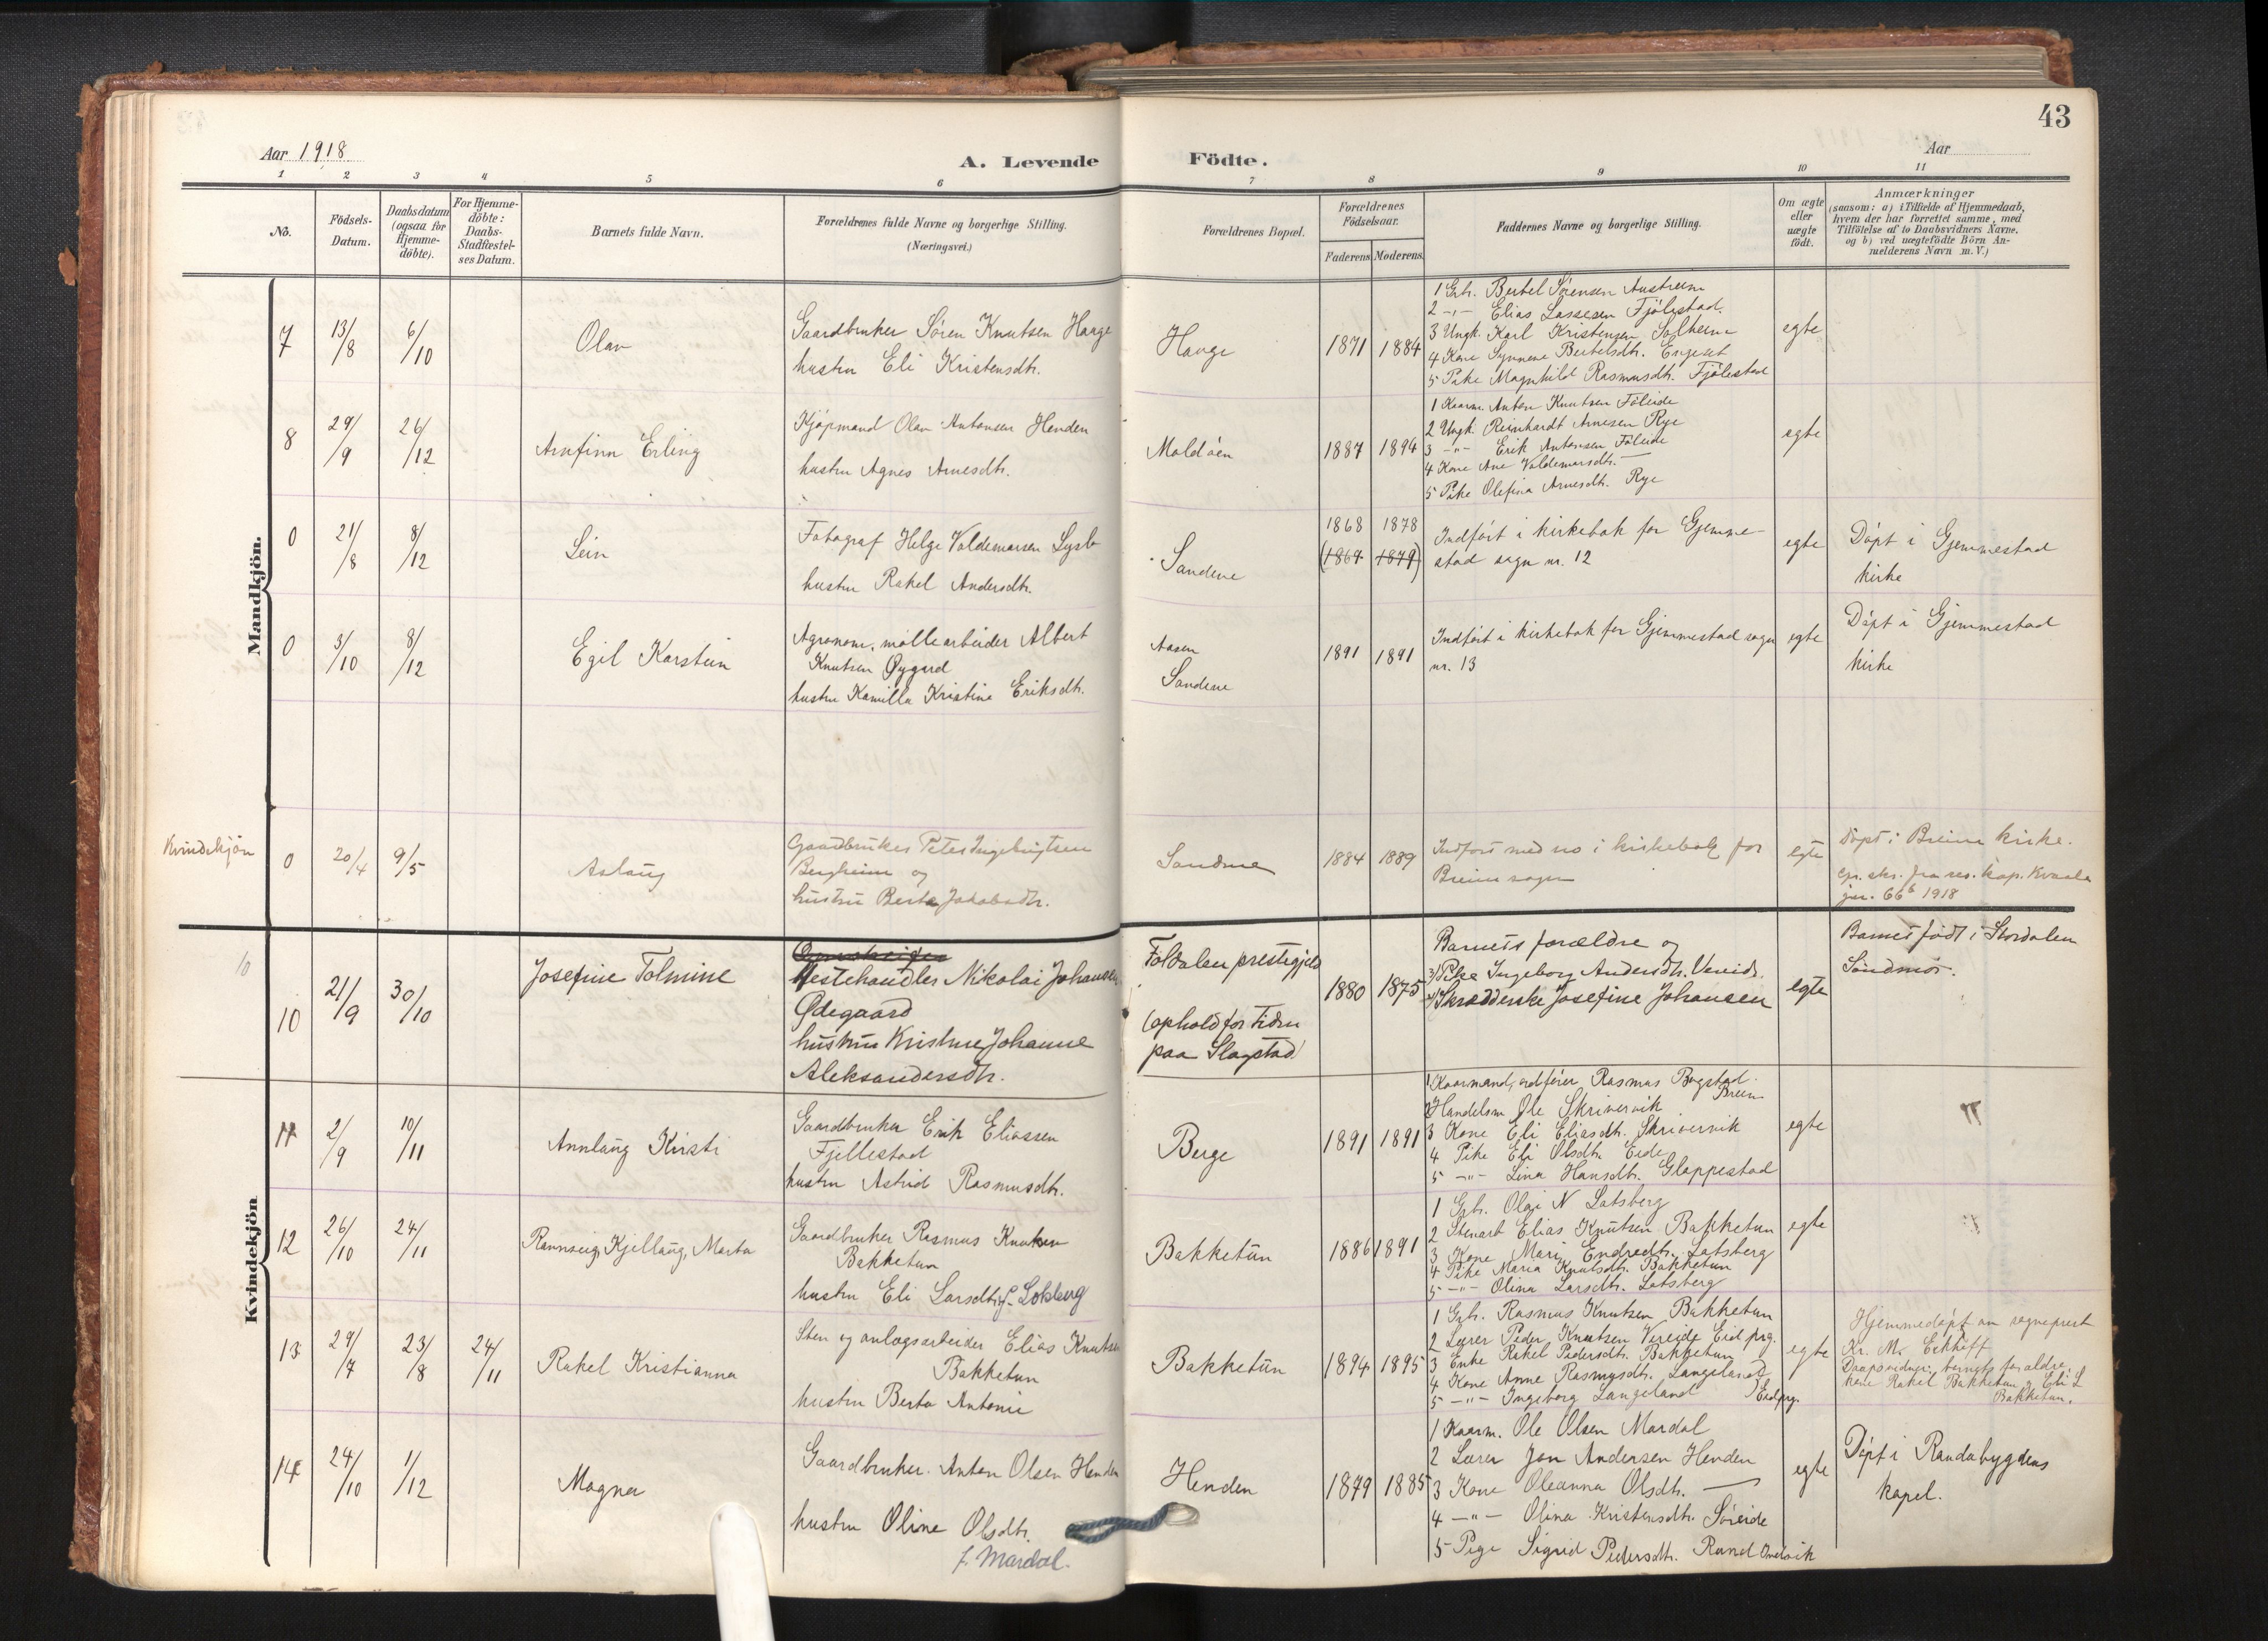 43
Aar 1918
A. Levende Födte.
Aar
1 2 3 4 5 6 7 8 9 10 11
No.
Födsels-Datum.
Daabsdatum (ogsaa for Hjemme-döbte).
For Hjemme-döbte: Daabs-Stadfæstel-ses Datum.
Barnets fulde Navn.
Forældrenes fulde Navne og borgerlige Stilling.
(Næringsvei.)
Forældrenes Bopæl.
Forældrenes Födselsaar.
Faderens Moderens
Faddernes Navne og borgerlige Stilling.
Om ægte eller uægte födt.
Anmærkninger
(saasom: a) i Tilfælde af Hjemmedaab,
hvem der har forrettet samme, med
Tilföielse af to Daabsvidners Navne,
og b) ved uægtefödte Börn An-
melderens Navn m. V.)
Mandkjön.
7
13/8
6/10
Olav
Gaardbruker Sören Knutsen Hauge
hustru Eli Kristensdtr.
Hauge
1871 1884
1 Gbr. Bertel Sörensen Austreim
2 -"- Elias Lassesen Fjölestad.
3 Ungk. Karl Kristensen Solheim
4 Kone Synneve Bertelsdtr. Engeset
5 Pike Magnhild Rasmusdtr. Fjölestad
egte
8
29/9
26/12
Arnfinn Erling
Kjöpmand Olav Antonsen Henden
hustru Agnes Arnesdtr.
Moldöen
1887 1894
1 Kaarm. Anton Knutsen Föleide
2 Ungk. Reinhardt Arnesen Rye
3 -"- Erik Antonsen Föleide
4 Kone Ane Valdemarsdtr. —
5 Pike Olefina Arnesdtr. Rye
egte
0
21/8
8/12
Lein
Fotograf Helge Valdemarsen Lysbo
hustru Rakel Andersdtr.
Sandene
1868 1878
(1867 1879)
Indfört i kirkebok for Gjemme-
stad sogn nr. 12
egte
Döpt i Gjemmestad
kirke
0
3/10
8/12
Egil Karstein
Agronom, möllearbeider Albert
Knutsen Øygard
hustru Kamilla Kristine Eriksdtr.
Aasen
Sandene
1891 1891
Indfört i kirkebok for Gjemmestad sogn
nr. 13
egte
Döpt i Gjemmestad
kirke
Kvindekjön
0
20/4
9/5
Aslaug
Gaardbruker Peter Ingebrigtsen
Bergheim og
hustru Berte Jakobsdtr.
Sandene
1884 1889
Indfört med no i kirkebok for
Breim sogn
egte
Döpt i Breim kirke.
cfr. skr. fra res. kap. Kvaale
jnr. 66b 1918
Kvindekjön
10
10
21/9
30/10
Josefine Tolmine
Hestehandler Nikolai Johansen
Ødegaard
hustru Kristine Johanne
Aleksandersdtr.
Foldalen prestegjeld
(ophold for Tiden
paa Slagstad)
1880 1875
Barnets forældre og
3) Pike Ingeborg Andersdtr. Vereide.
4) Skrædderske Josefine Johansen
egte
Barnet födt i Stordalen
Söndmör.
11
2/9
10/11
Annlaug Kirsti
Gaardbruker Erik Eliassen
Fjellestad
hustru Astrid Rasmusdtr.
Berge
1891 1891
1 Kaarmand, ordförer Rasmus Bogstad
Breim
2 Handelsm. Ole Skrivervik
3 Kone Eli Eliasdtr. Skrivervik
4 Pike Eli Olsdtr. Eide
5 -"- Lina Hansdtr. Gloppestad
egte
12
26/10
24/11
Rannveig, Kjellaug, Marta
Gaardbruker Rasmus Knutsen
Bakketun
hustru Eli Larsdtr. f. Lotsberg
Bakketun
1886 1891
1 Gbr. Olai N Lotsberg
2 Stenarb Elias Knutsen Bakketun
3 Kone Mari Endredtr. Lotsberg
4 Pike Maria Knutsdtr. Bakketun
5 -"- Olina Larsdtr. Lotsberg
egte
13
29/7
23/8
24/11
Rakel Kristianna
Sten og anlægsarbeider Elias Knutsen
Bakketun
hustru Berta Antonie
Bakketun
1894 1895
1 Gbr. Rasmus Knutsen Bakketun
2 Lærer Peder Knutsen Vereide Eid prg.
3 Enke Rakel Pedersdtr. Bakketun
4 Kone Anne Rasmusdtr. Langeland
5 -"- Ingeborg Langeland } Eid prg.
egte
Hjemmedöpt av sogneprest
Kr. M. Eckhoff
Daapsvidner: barnets forældre,
kone Rakel Bakketun og Eli L
Bakketun.
14
24/10
1/12
Magna
Gaardbruker Anton Olsen Henden
hustru Oline Olsdtr.
f. Mardal.
Henden
1879 1885
1 Kaarm. Ole Olsen Mardal
2 Lærer Jon Andersen Henden
3 Kone Oleanna Olsdtr. —
4 -"- Olina Kristensdtr. Söreide
5 Pige Sigrid Pedersdtr. Rand Innvik
egte
Döpt i Randabygdens
kapel.